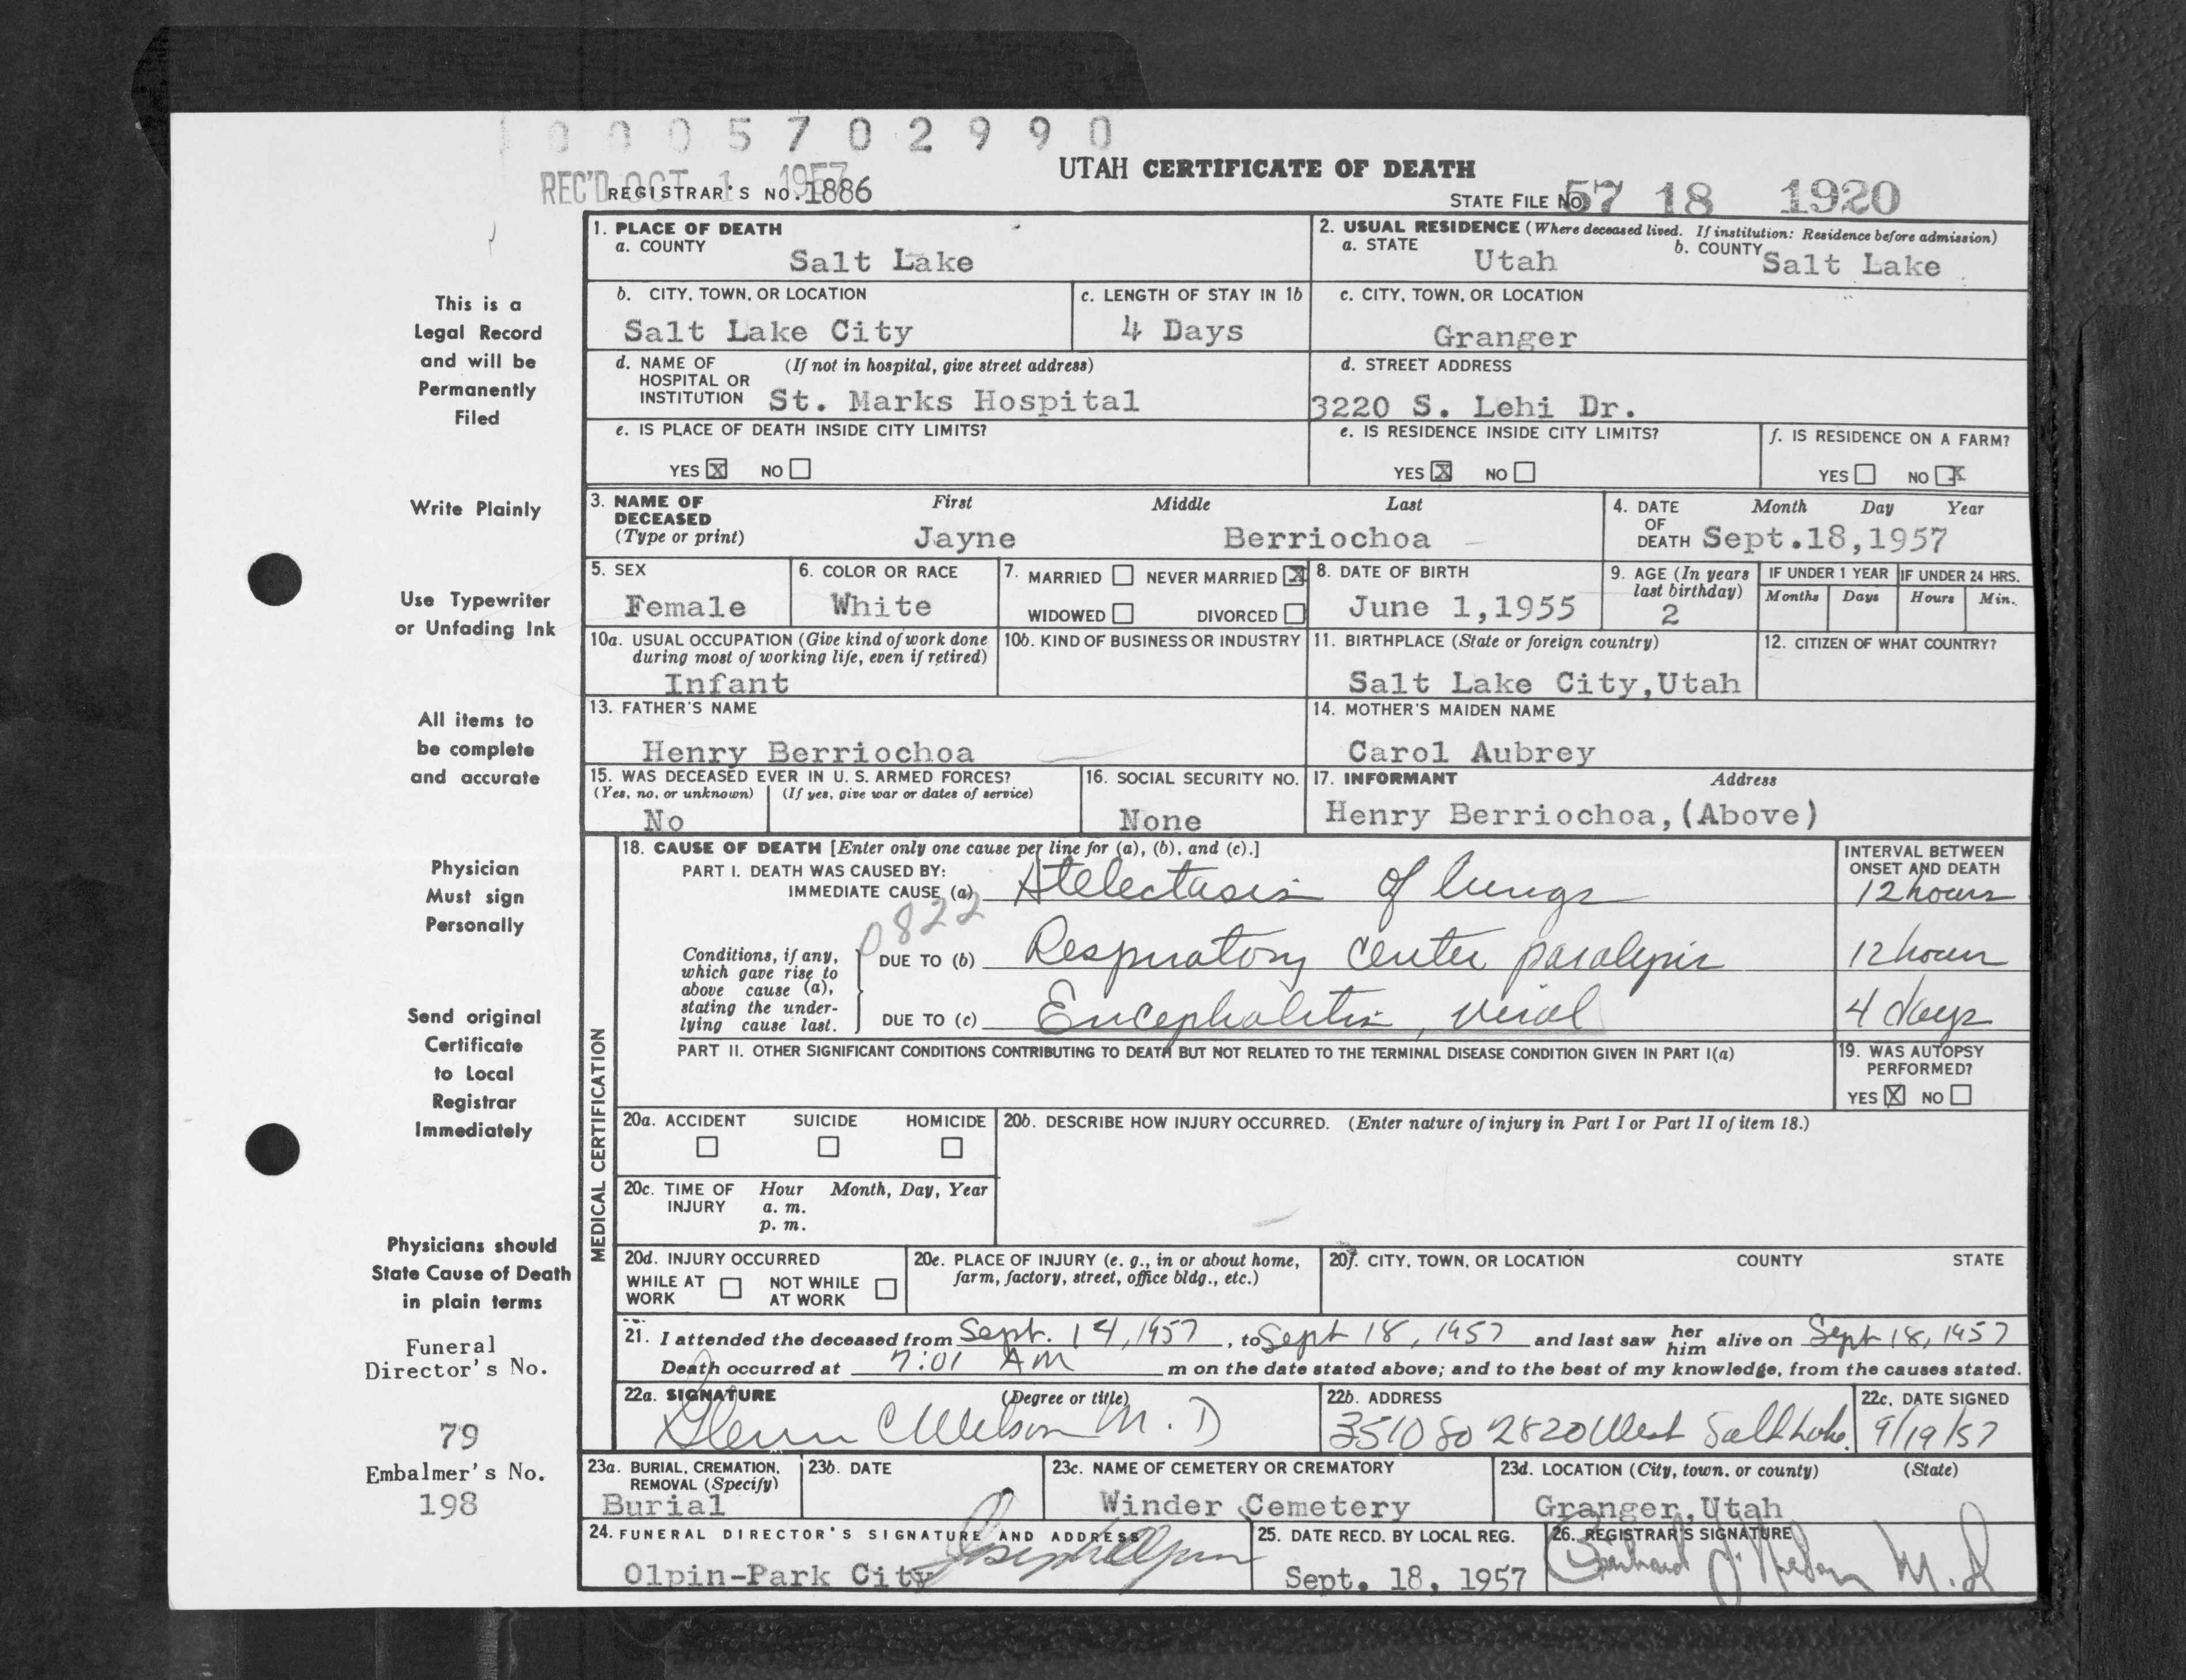 0005702990
UTAH CERTIFICATE OF DEATH
REC'D OCT 1 1957
REGISTRAR'S NO. 1886
STATE FILE NO. 57 18 1920
1. PLACE OF DEATH
a. COUNTY
Salt Lake
2. USUAL RESIDENCE (Where deceased lived. If institution: Residence before admission)
a. STATE
Utah
b. COUNTY
Salt Lake
b. CITY, TOWN, OR LOCATION
Salt Lake City
c. LENGTH OF STAY IN 1b
4 Days
c. CITY, TOWN, OR LOCATION
Granger
d. NAME OF HOSPITAL OR INSTITUTION
(If not in hospital, give street address)
St. Marks Hospital
d. STREET ADDRESS
3220 S. Lehi Dr.
e. IS PLACE OF DEATH INSIDE CITY LIMITS?
YES X NO
e. IS RESIDENCE INSIDE CITY LIMITS?
YES X NO
f. IS RESIDENCE ON A FARM?
YES NO X
3. NAME OF DECEASED
(Type or print)
First Middle Last
Jayne Berriochoa
4. DATE OF DEATH
Month Day Year
Sept.18,1957
5. SEX
Female
6. COLOR OR RACE
White
7. MARRIED NEVER MARRIED X
WIDOWED DIVORCED
8. DATE OF BIRTH
June 1,1955
9. AGE (In years last birthday)
2
IF UNDER 1 YEAR
Months Days
IF UNDER 24 HRS.
Hours Min.
10a. USUAL OCCUPATION (Give kind of work done during most of working life, even if retired)
Infant
10b. KIND OF BUSINESS OR INDUSTRY
11. BIRTHPLACE (State or foreign country)
Salt Lake City,Utah
12. CITIZEN OF WHAT COUNTRY?
13. FATHER'S NAME
Henry Berriochoa
14. MOTHER'S MAIDEN NAME
Carol Aubrey
15. WAS DECEASED EVER IN U. S. ARMED FORCES?
(Yes, no, or unknown) (If yes, give war or dates of service)
No
16. SOCIAL SECURITY NO.
None
17. INFORMANT Address
Henry Berriochoa,(Above)
MEDICAL CERTIFICATION
18. CAUSE OF DEATH [Enter only one cause per line for (a), (b), and (c).]
PART I. DEATH WAS CAUSED BY:
IMMEDIATE CAUSE (a) Atelectasis of lungs
0822
Conditions, if any, which gave rise to above cause (a), stating the underlying cause last.
DUE TO (b) Respiratory Center paralysis
DUE TO (c) Encephalitis, viral
INTERVAL BETWEEN ONSET AND DEATH
12 hours
12 hours
4 days
PART II. OTHER SIGNIFICANT CONDITIONS CONTRIBUTING TO DEATH BUT NOT RELATED TO THE TERMINAL DISEASE CONDITION GIVEN IN PART I(a)
19. WAS AUTOPSY PERFORMED?
YES X NO
20a. ACCIDENT SUICIDE HOMICIDE
20b. DESCRIBE HOW INJURY OCCURRED. (Enter nature of injury in Part I or Part II of item 18.)
20c. TIME OF INJURY
Hour Month, Day, Year
a. m.
p. m.
20d. INJURY OCCURRED
WHILE AT WORK NOT WHILE AT WORK
20e. PLACE OF INJURY (e. g., in or about home, farm, factory, street, office bldg., etc.)
20f. CITY, TOWN, OR LOCATION COUNTY STATE
21. I attended the deceased from Sept. 14, 1957, to Sept 18, 1957 and last saw her him alive on Sept 18, 1957
Death occurred at 7:01 AM m on the date stated above; and to the best of my knowledge, from the causes stated.
22a. SIGNATURE (Degree or title)
Glenn C Nelson M. D
22b. ADDRESS
3510 So 2820 West Salt Lake
22c. DATE SIGNED
9/19/57
23a. BURIAL, CREMATION, REMOVAL (Specify)
Burial
23b. DATE
23c. NAME OF CEMETERY OR CREMATORY
Winder Cemetery
23d. LOCATION (City, town, or county) (State)
Granger,Utah
24. FUNERAL DIRECTOR'S SIGNATURE AND ADDRESS
Olpin-Park City
25. DATE RECD. BY LOCAL REG.
Sept. 18, 1957
26. REGISTRAR'S SIGNATURE
M.D
This is a
Legal Record
and will be
Permanently
Filed
Write Plainly
Use Typewriter
or Unfading Ink
All items to
be complete
and accurate
Physician
Must sign
Personally
Send original
Certificate
to Local
Registrar
Immediately
Physicians should
State Cause of Death
in plain terms
Funeral
Director's No.
79
Embalmer's No.
198